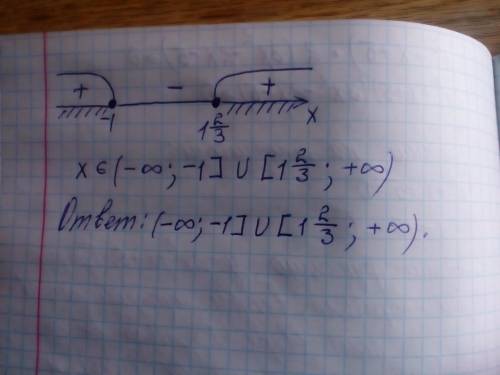 + - +
-1 1 2/3 x
x ∈ (-∞; -1] ∪ [1 2/3; +∞)
Ответ: (-∞; -1] ∪ [1 2/3; +∞).